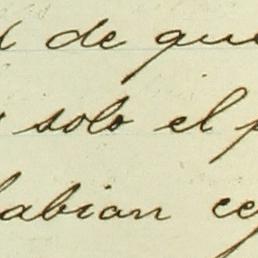 de que
solo el
habian ce